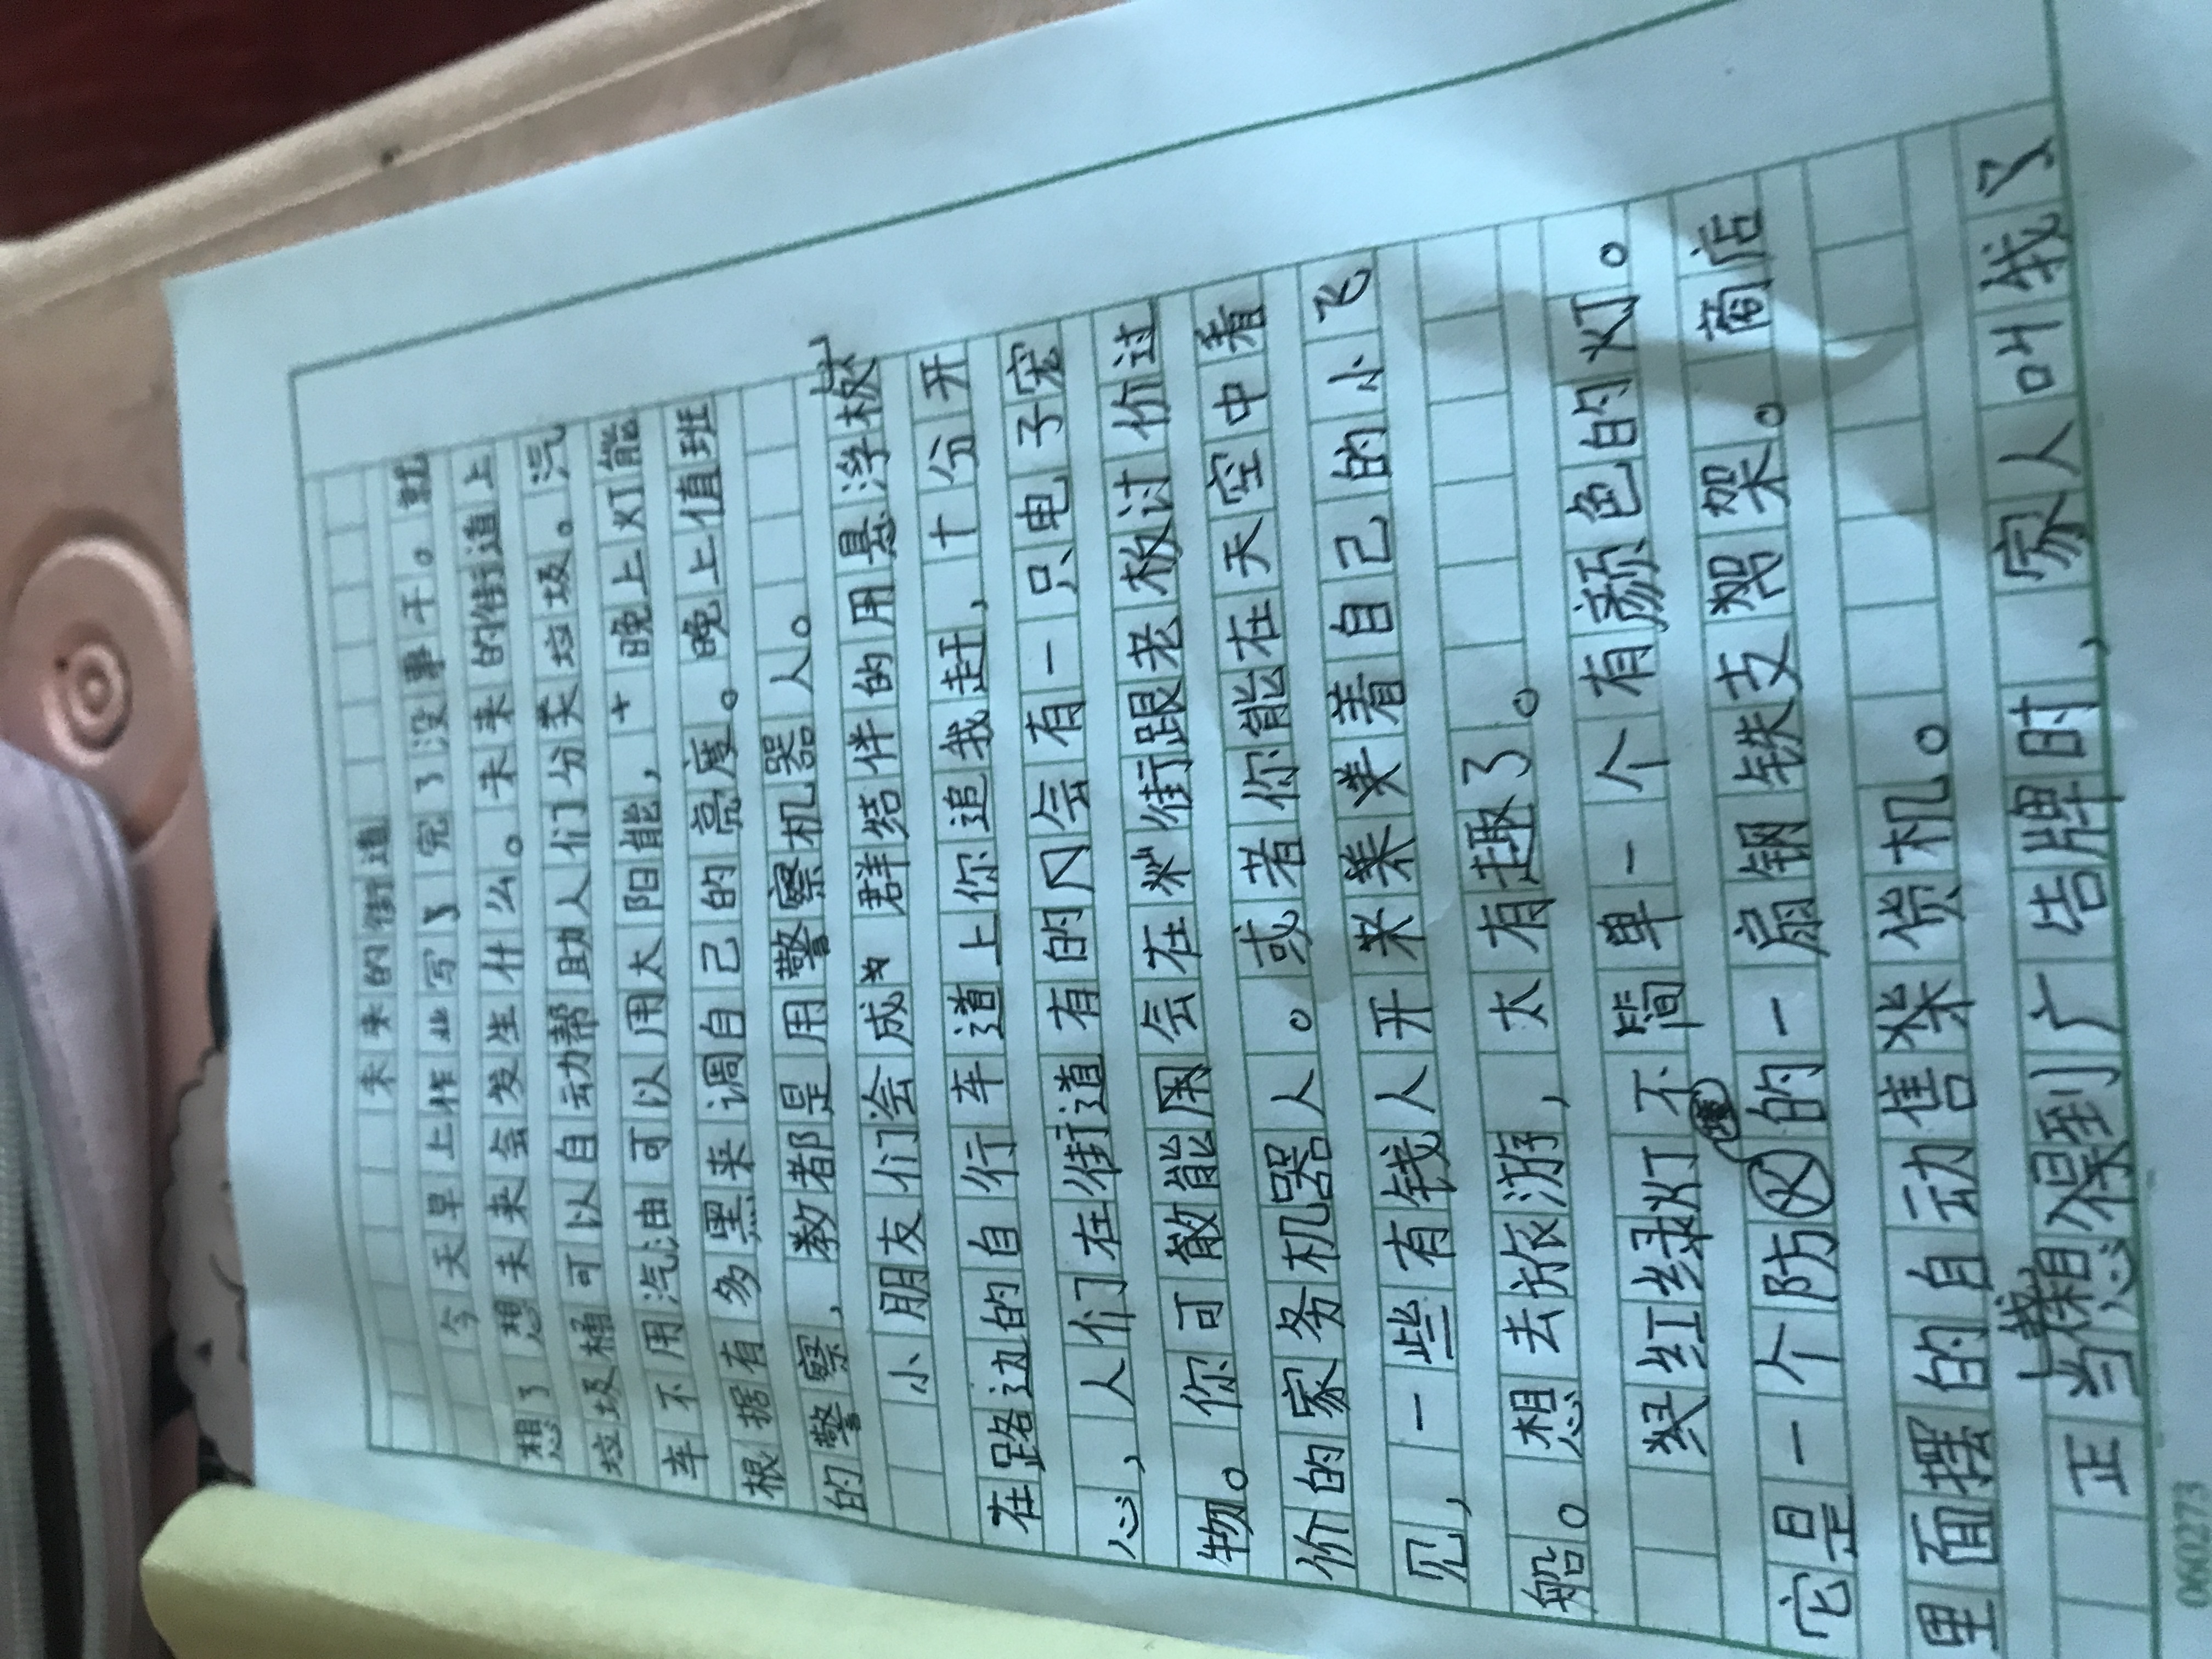 未来的街道
今天早上作业写了完了没事干。就
想了想未来会发生什么。未来的街道上
垃圾桶可以自动帮助人们分类垃圾。汽
车不用汽油可以用太阳能，+晚上灯能
根据有多黑来调自己的亮度。晚上值班
的警察，教都是用警察机器人。
小朋友们会成为群结伴的用悬浮板
在路边的自行车道上你追我赶，十分开
心，人们在街道有的人会有一只电子宠
物。你可散能用会在来街跟老板讨价过
价的家务机器人。或者你能在天空中看
见，一些有钱人开着自己的小飞
船。想去旅游，太有趣了。
红绿灯不简单一个有颜色的灯。
它是一个防撞的一扇钢铁支架。商店
里面摆的自动售货机。
正当我想得到广告牌时，家人叫我了
060273